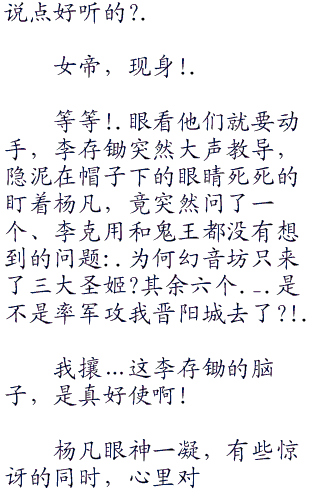 说点好听的?.
女帝，现身!.
等等!.眼看他们就要动
手，李存锄突然大声教导，
隐泥在帽子下的眼睛死死的
盯着杨凡，竟突然问了一
个、李克用和鬼王都没有想
到的问题:.为何幻音坊只来
了三大圣姬?其余六个._.是
不是率军攻我晋阳城去了?!.
我攘…这李存锄的脑
子，是真好使啊!
杨凡眼神一凝，有些惊
讶的同时，心里对